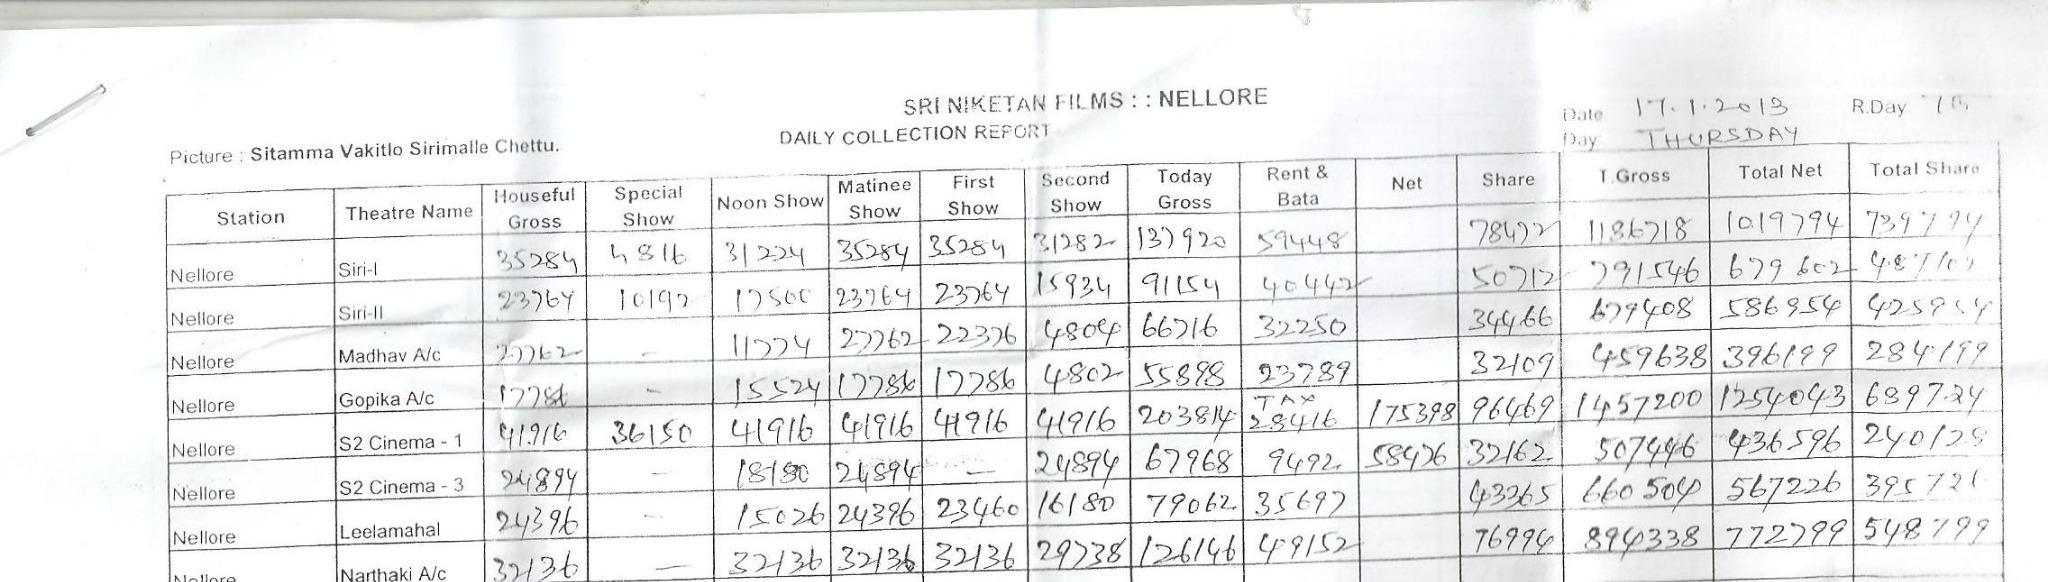 SRI NIKETAN FILMS : : NELLORE
Date 17.1.2013 R.Day
DAILY COLLECTION REPORT
Day THURSDAY
Picture : Sitamma Vakitlo Sirimalle Chettu.
Station Theatre Name Houseful Gross Special Show Noon Show Matinee Show First Show Second Show Today Gross Rent & Bata Net Share T.Gross Total Net Total Share
Nellore Siri-I 35284 4816 31224 35284 35284 31282 137920 59448 78472 1186718 1019794
Nellore Siri-II 23764 10192 17500 23764 23764 15934 91154 40442 50712 791546 679602
Nellore Madhav A/c 27762 - 11774 27762 22376 4804 66716 32250 34466 679408 586954
Nellore Gopika A/c 17786 - 15524 17786 17786 4802 55898 23789 32109 459638 396199 284199
Nellore S2 Cinema - 1 41916 36150 41916 41916 41916 41916 203814 TAX 28416 175398 96469 1457200 1254043 689724
Nellore S2 Cinema - 3 24894 - 18180 24894 - 24894 67968 9492 58476 32162 507446 436596 240128
Nellore Leelamahal 24396 - 15026 24396 23460 16180 79062 35697 43365 660504 567226 395721
Nellore Narthaki A/c 32136 - 32136 32136 32136 29738 126146 49152 76994 894338 772799 548799